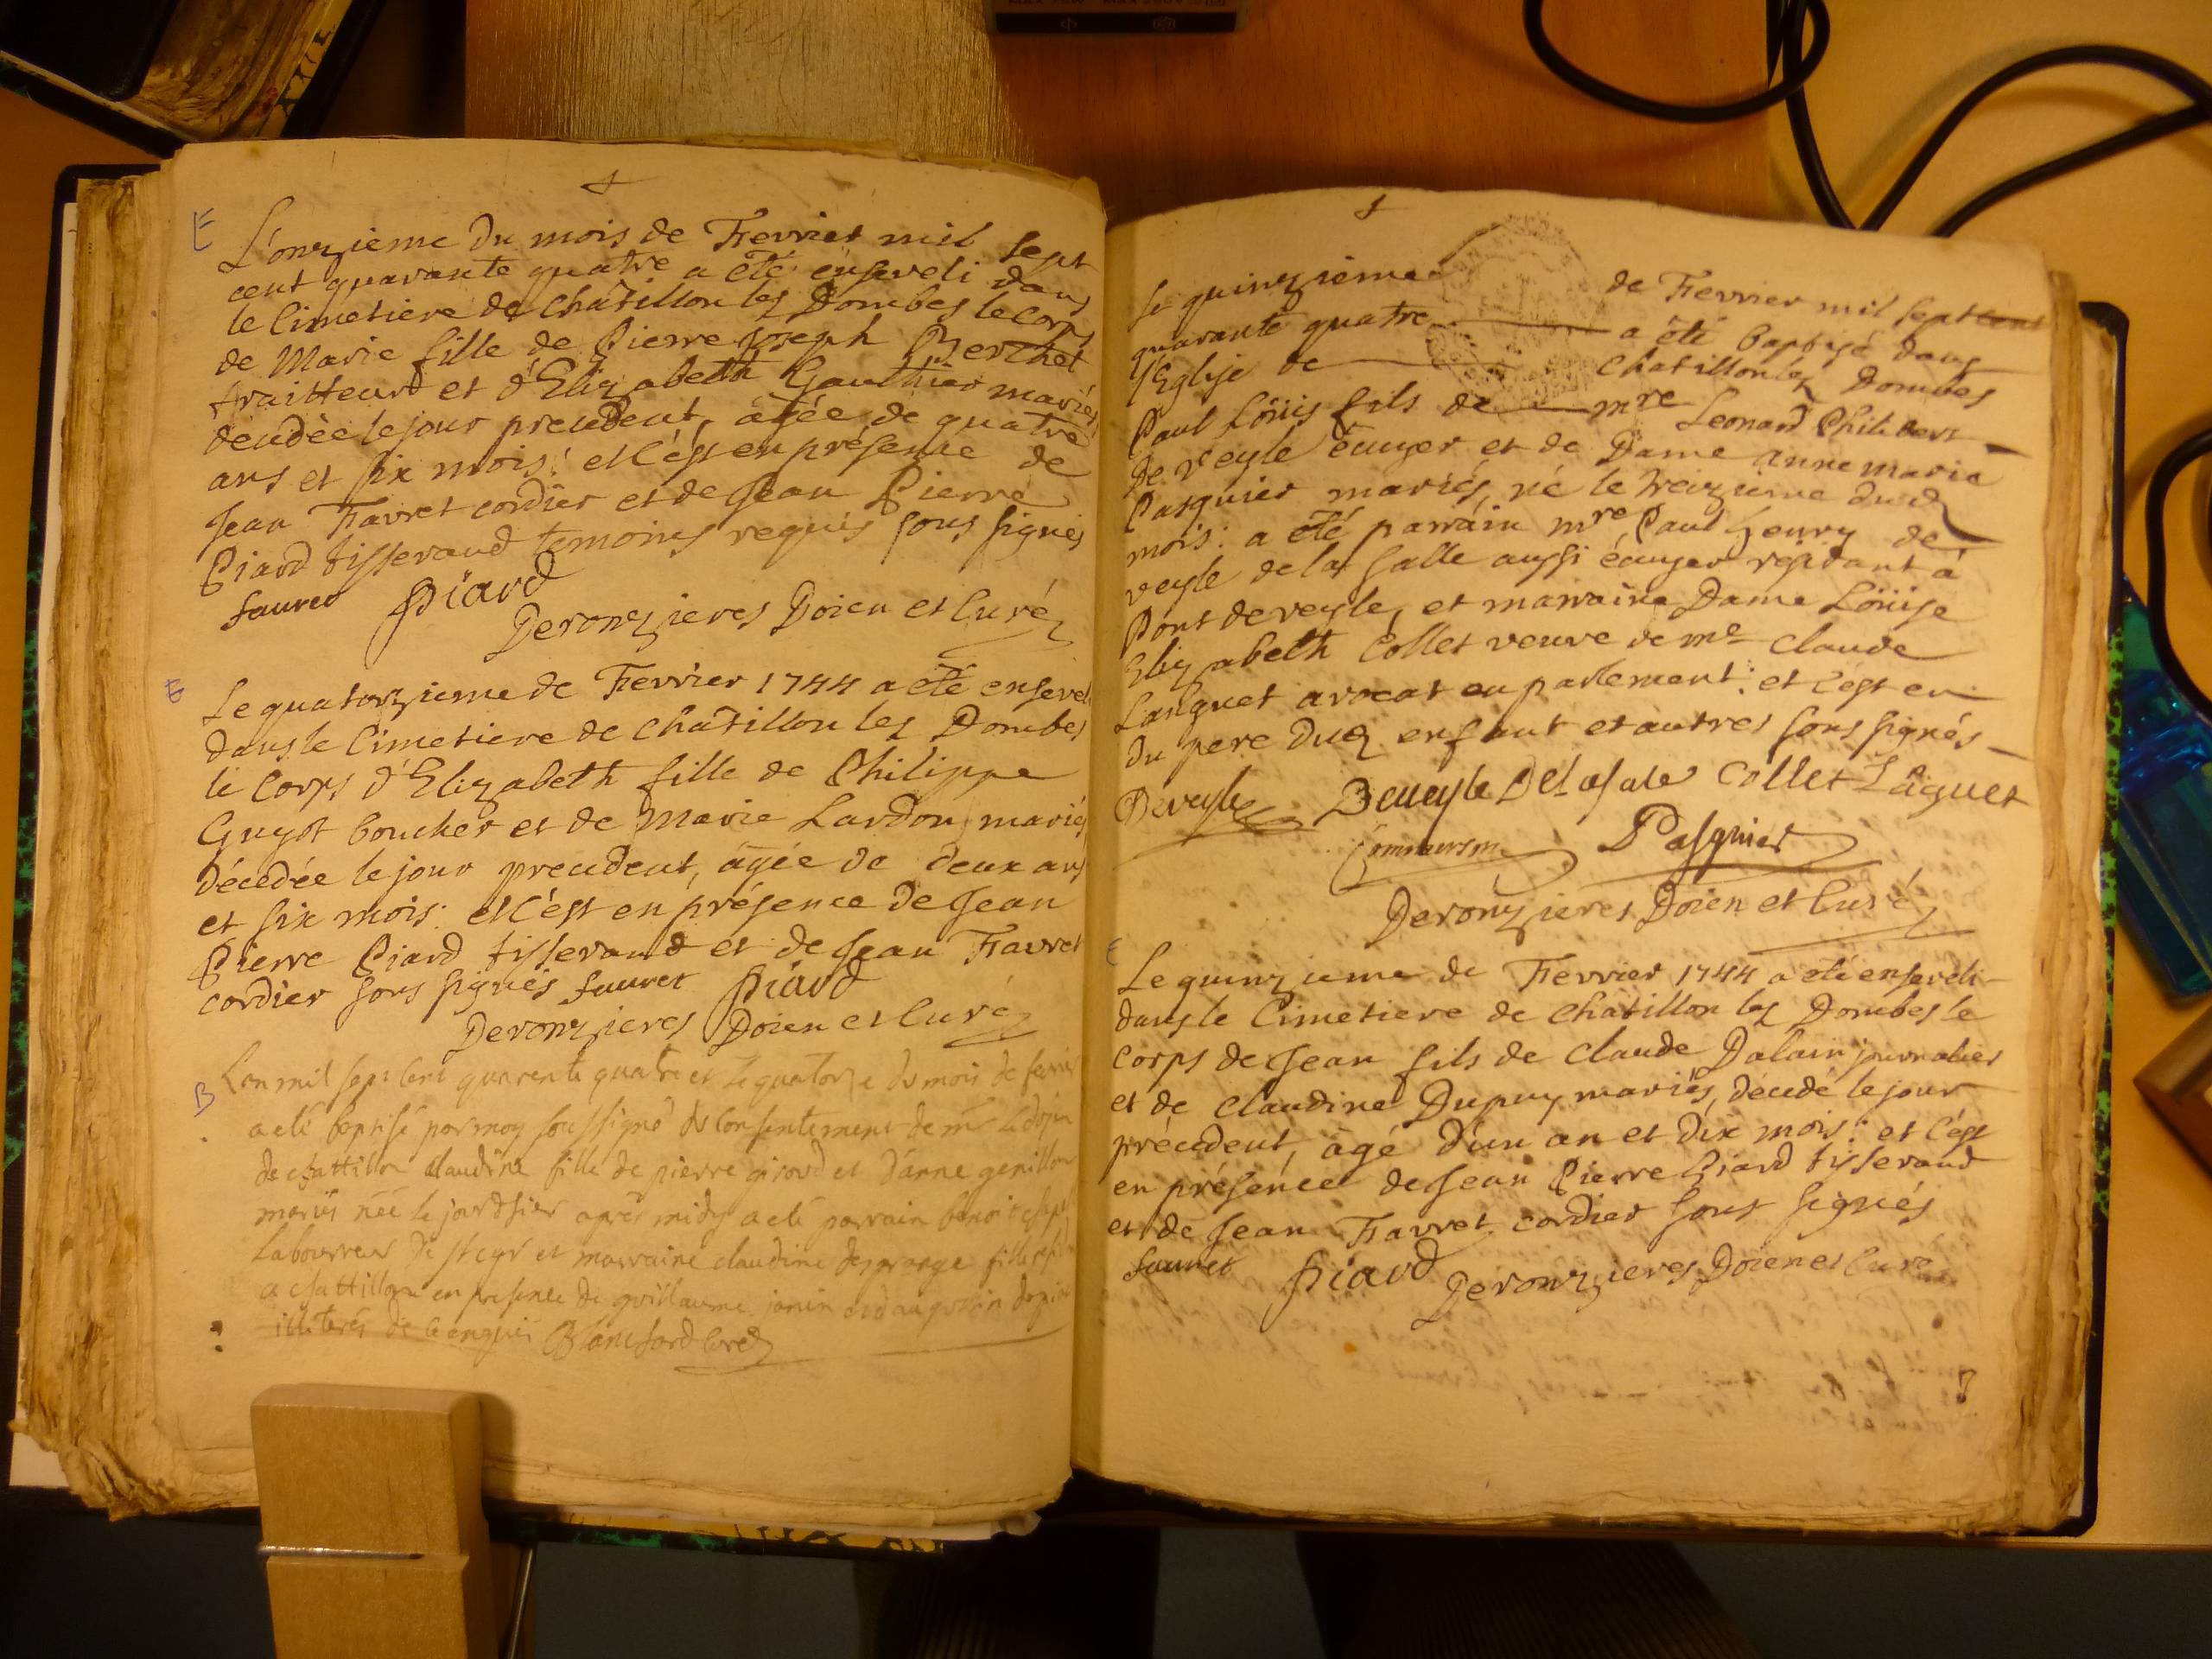 E
L'onzieme du mois de Fevrier mil sept
cent quarante quatre a été enseveli dans
le Cimetiere de Châtillon lez Dombes le corps
de Marie fille de Pierre Joseph Berthet
traitteur et d'Elizabeth Gauthier mariés,
decedée le jour precedent, âgée de quatre
ans et six mois: et c'est en présence de
Jean Favret cordier et de Jean Pierre
Piard tisserand temoins requis sous signés
fauret Piard
Deronzieres Doien et Curé
E
Le quatorzieme de Fevrier 1744 a été enseveli
dans le Cimetiere de Châtillon lez Dombes
le Corps d'Elizabeth fille de Philippe
Guyot boucher et de Marie Lardon mariés
décedée le jour precedent, âgée de deux ans
et six mois: et c'est en présence de Jean
Pierre Piard tisserand et de Jean Favret
cordier sous signés fauret Piard
Deronzieres Doien et Curé
B
Lan mil sept cent quarente quatre et le quatorze du mois de fevrier
a eté baptisé par moy soussigné du consentement de mr le doyen
de chattillon claudine fille de pierre giroud et d'anne genillon
mariés née le jourd'hier apres midy a eté parrain benoit
Laboureur de st cyr et marraine claudine desgrange fille
a chattillon en presence de guillaume janin et d'augustin
illiterés de ce enquis Blanchard curé
Le quinzieme de Fevrier mil sept cent
quarante quatre a été baptisé dans
l'Eglise de Chatillon lez Dombes
Paul Löuis fils de mre Leonard Philibert
de veyle écuyer et de Dame anne marie
Pasquier mariés, né le treizieme dud
mois: a été parrain mre Paul henry de
veyle de la salle aussi écuyer residant à
Pont de veyle, et marraine Dame Löuise
Elizabeth Collet veuve de me Claude
Languet avocat en parlement: et c'est en
du pere dud enfant et autres sous signés
Deveyle Deveyle Delasale Collet Laguet
Commerson Pasquier
Deronzieres Doien et Curé
E
Le quinzieme de Fevrier 1744 a été enseveli
dans le Cimetiere de Châtillon lez Dombes le
corps de Jean fils de Claude Dalain journalier
et de Claudine Dupuy mariés, décedé le jour
précedent, âgé d'un an et dix mois: et c'est
en présence de Jean Pierre Piard tisserand
et de Jean Favret cordier sous signés
fauret Piard Deronzieres Doien et Curé